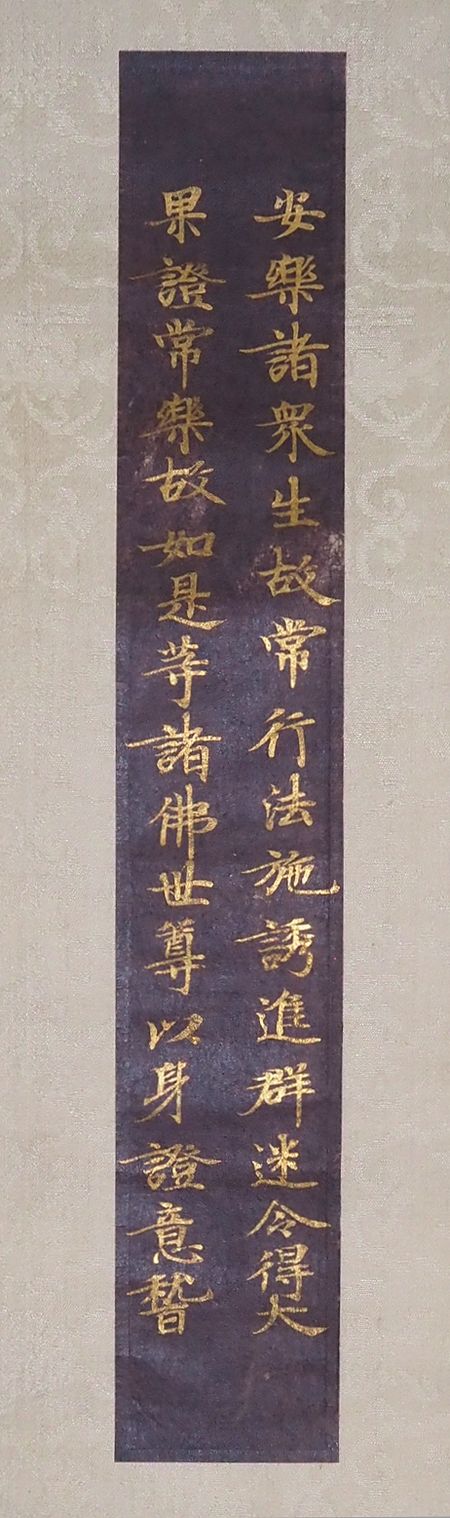 安樂諸衆生故常行法施誘進群迷令得大
果證常樂故如是等諸佛世尊以身證意誓